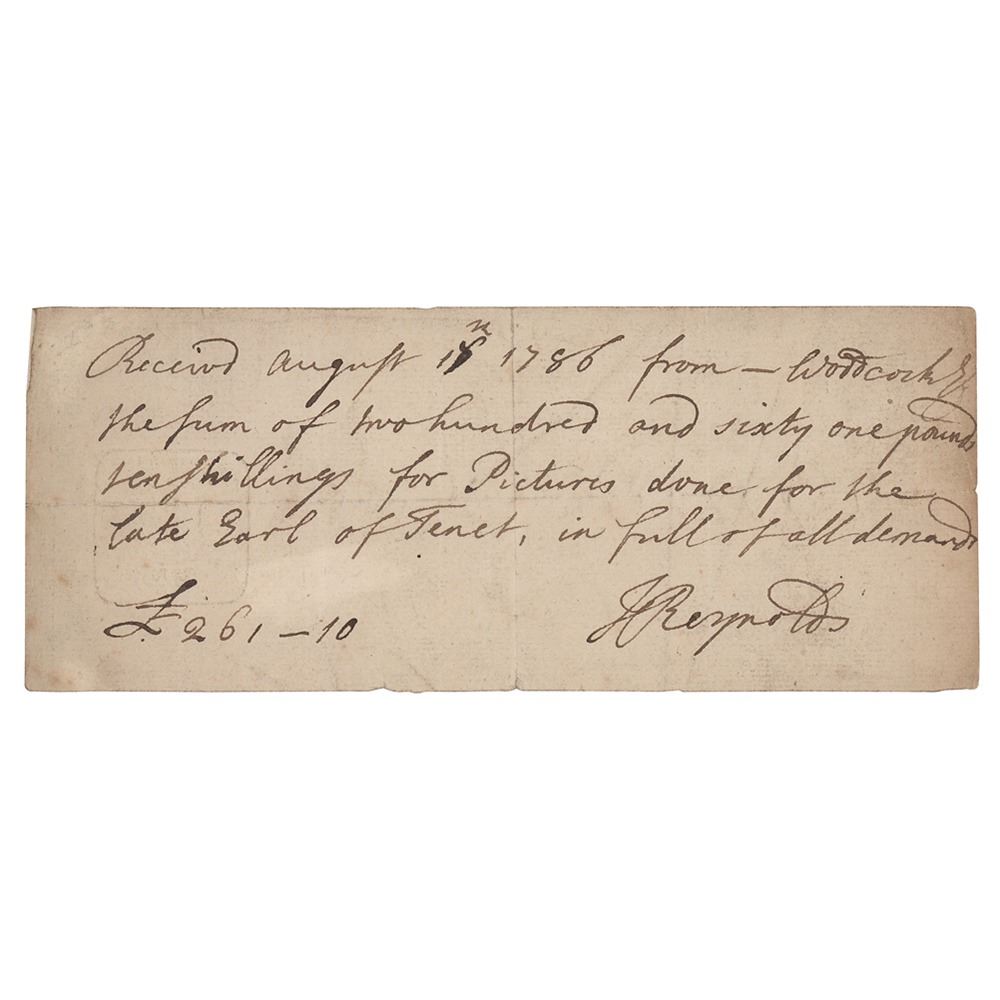 Receivd August 18th 1786 from — Woodcock Esq
the sum of two hundred and sixty one pounds
ten shillings for Pictures done for the
late Earl of Tenet, in full of all demands
£261–10 JReynolds